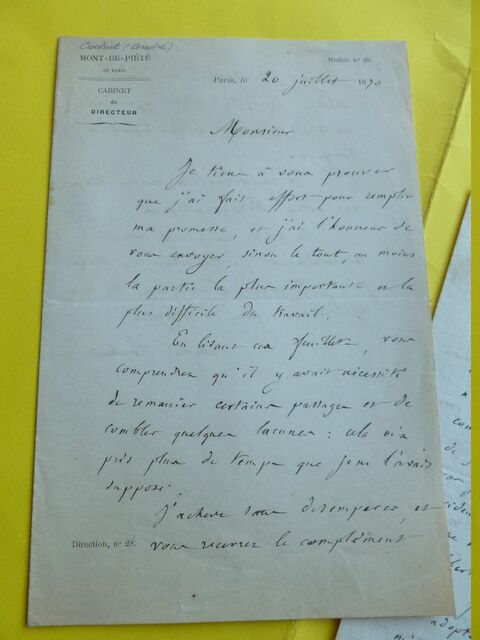 Cochut (André)
MONT-DE-PIÉTÉ
DE PARIS
CABINET
du
DIRECTEUR
Modèle nº 28.
Paris, le 20 juillet 1870
Monsieur
Je tiens à vous prouver
que j'ai fait effort pour remplir
ma promesse, et j'ai l'honneur de
vous envoyer, sinon le tout, au moins
la partie la plus importante et la
plus difficile du travail.
En lisant ces feuillets, vous
comprendrez qu'il y avait nécessité
de remanier certains passages et de
combler quelques lacunes : cela m'a
pris plus de temps que je ne l'avais
supposé.
J'achève sans désemparer, et
Direction, nº 28.
vous recevrez le complément